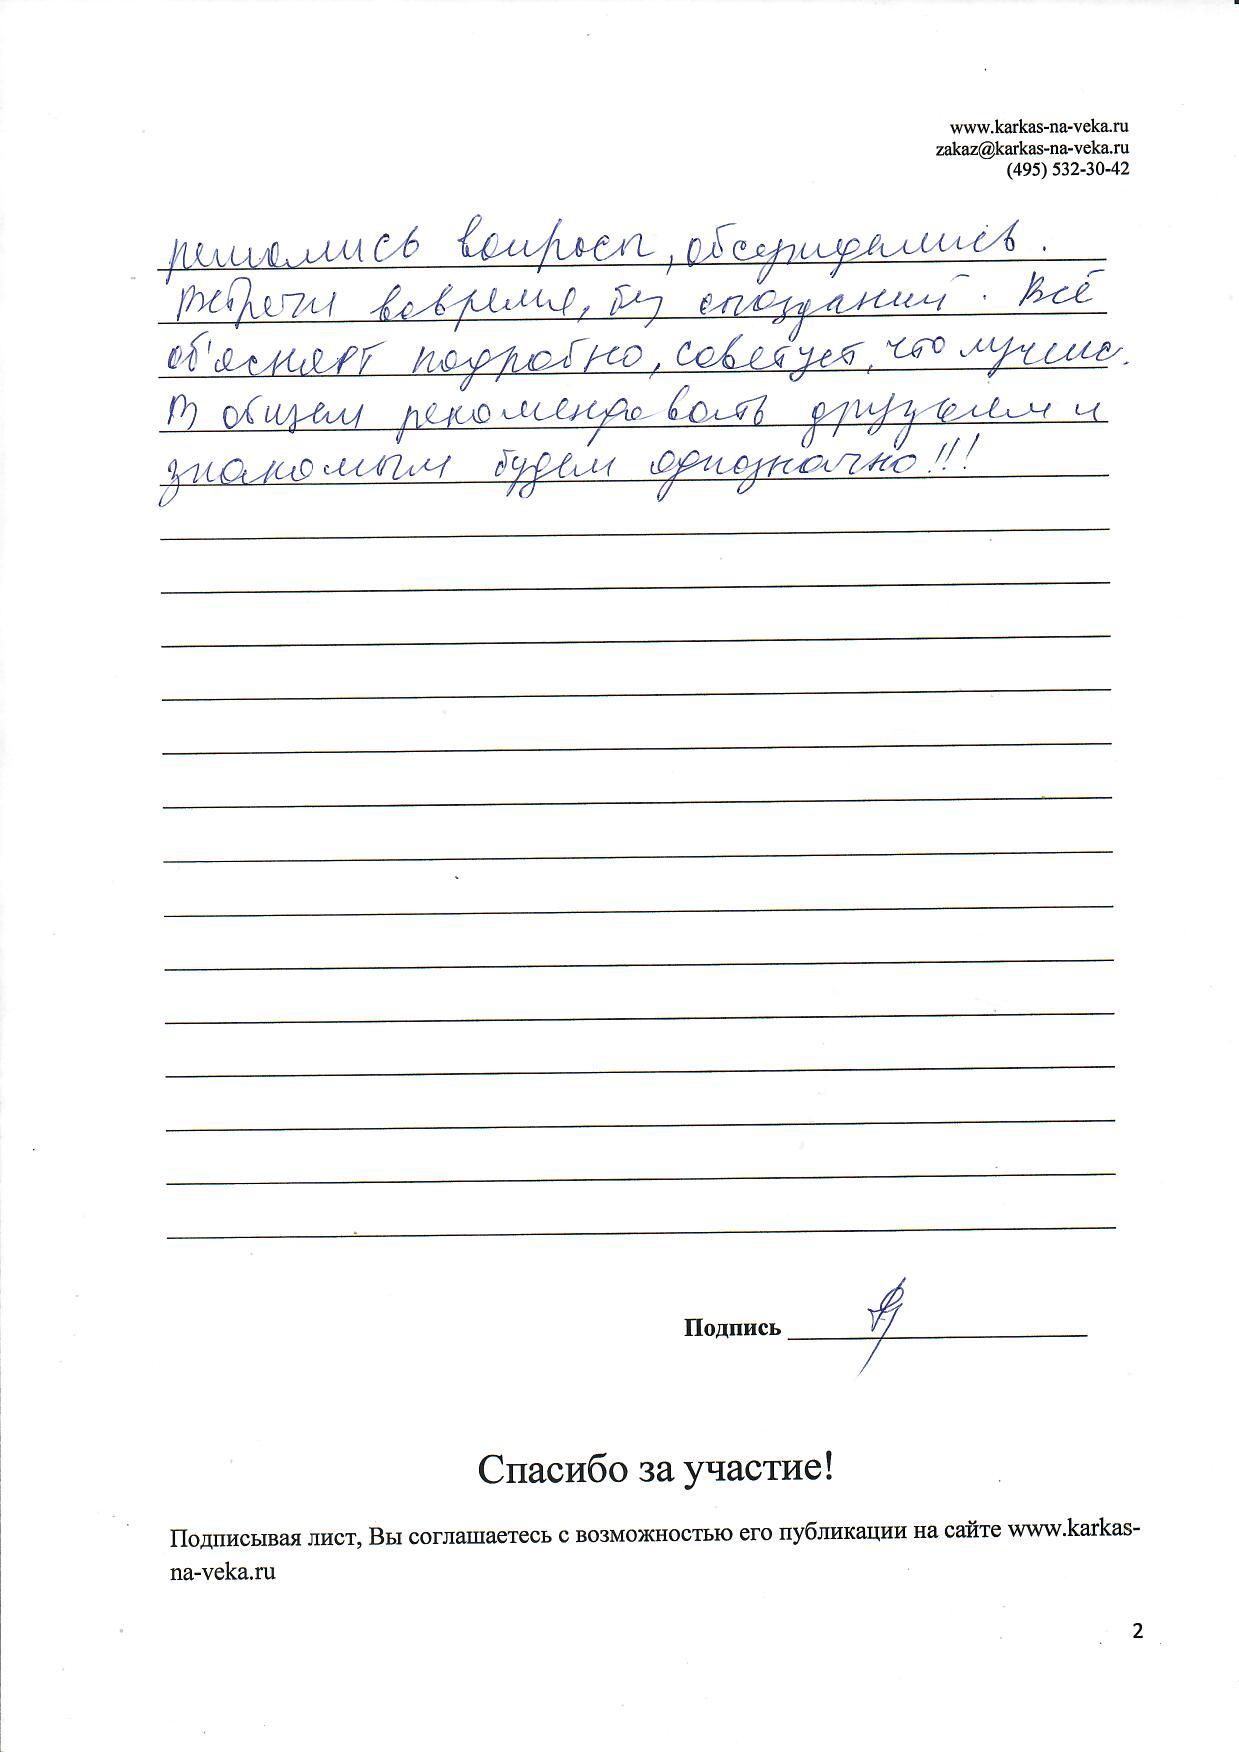 www.karkas-na-veka.ru
zakaz@karkas-na-veka.ru
(495) 532-30-42
решались вопросы, обсуждались.
Встречи вовремя, без опозданий. Всё
об'ясняет подробно, советует, что лучше.
В общем рекомендовать друзьям и
знакомым будем однозначно!!!
Подпись
Спасибо за участие!
Подписывая лист, Вы соглашаетесь с возможностью его публикации на сайте www.karkas-
na-veka.ru
2